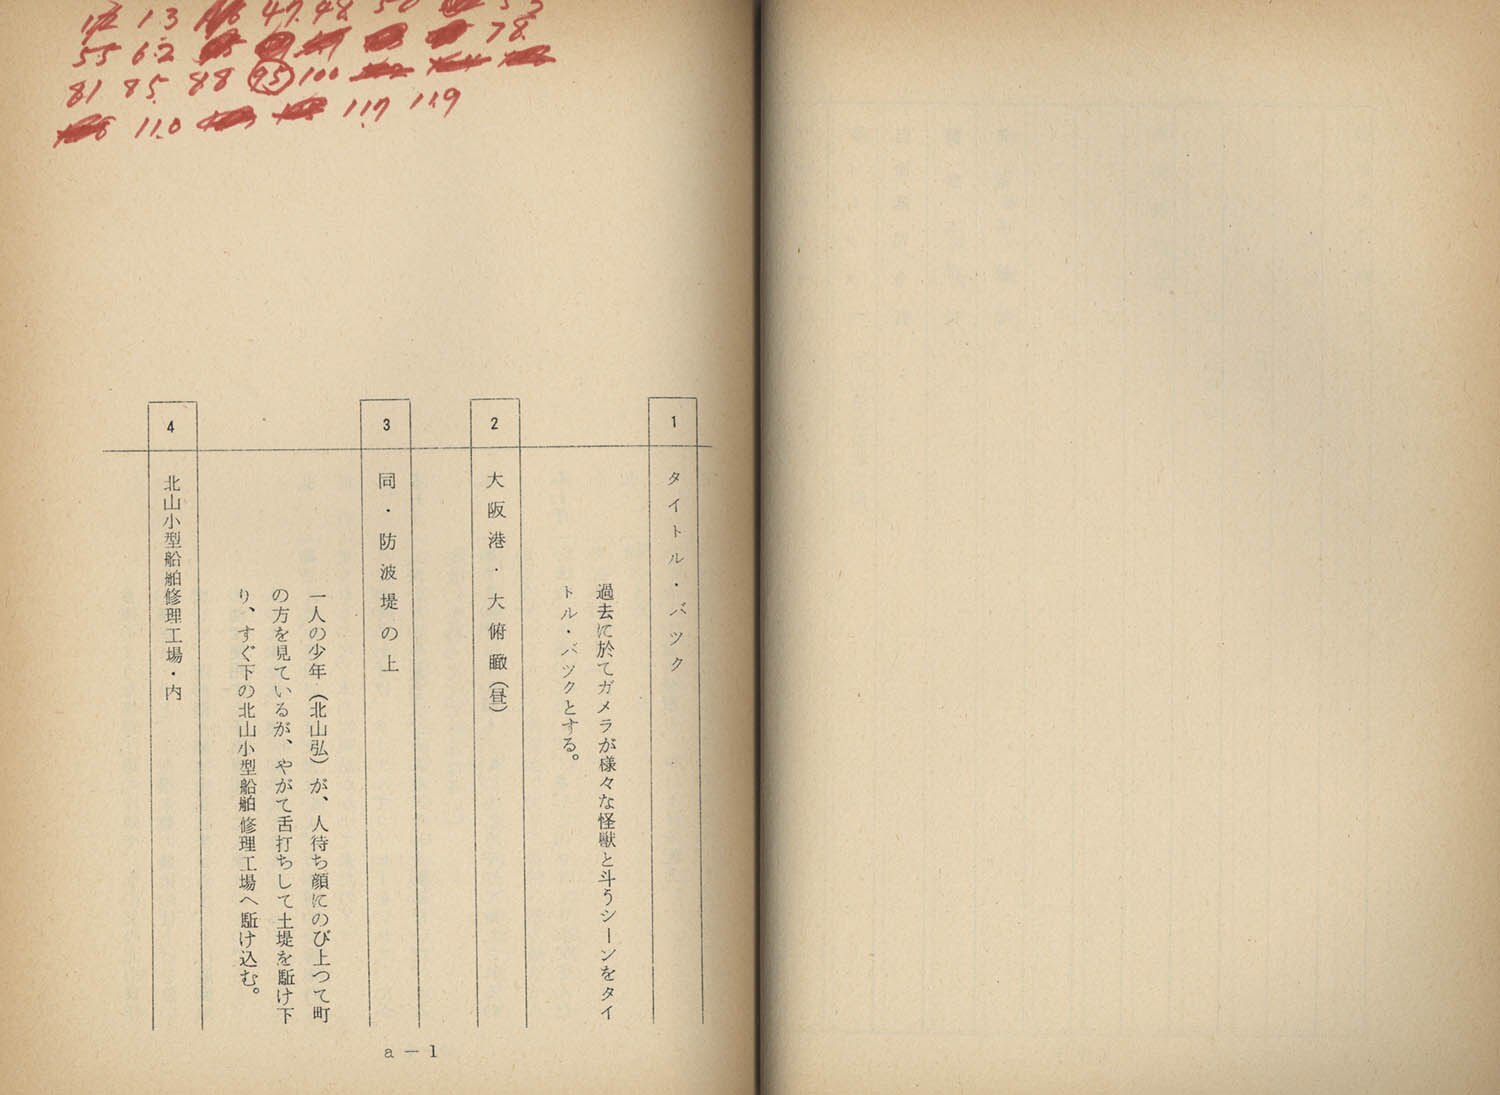 13 47. 48. 50 53
55 62 78.
81 85. 88 95 100
110 117 119
1
タイトル・バツク
過去に於てガメラが様々な怪獣と斗うシーンをタイ
トル・バツクとする。
2
大阪港・大俯瞰（昼）
3
同・防波堤の上
一人の少年（北山弘）が、人待ち顔にのび上つて町
の方を見ているが、やがて舌打ちして土堤を駈け下
り、すぐ下の北山小型船舶修理工場へ駈け込む。
4
北山小型船舶修理工場・内
a－1